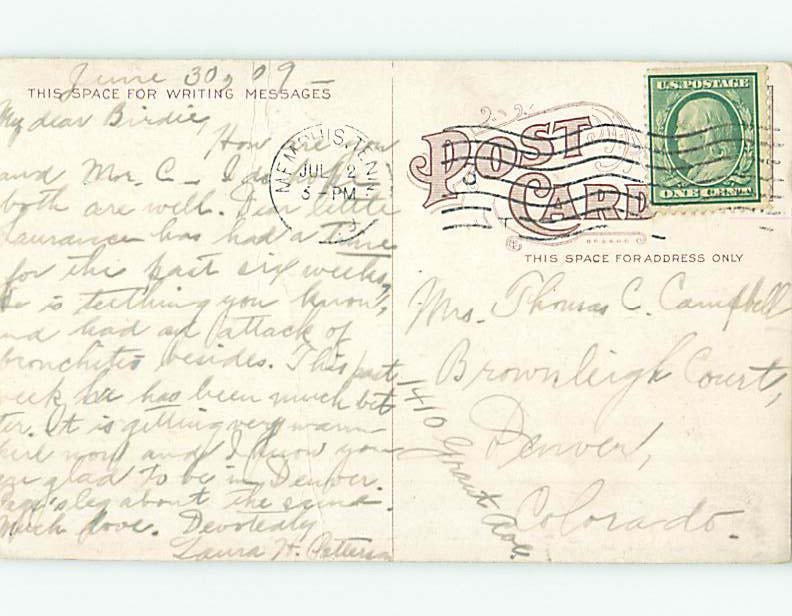 June 30, 09
THIS SPACE FOR WRITING MESSAGES
My dear Birdie,
How are you
and Mr. C— I do hope
both are well. Dear little
Laurance has had a time
for the past six weeks,
He is teething you know,
and had an attack of
bronchitis besides. This past
week he has been much bet
ter. It is getting very warm
here now and I know you
are glad to be in Denver.
leg about the same.
Much love. Devotedly
Laura H. Patterson
MEMPHIS, TENN.
JUL 2
3 - PM
POST
CARD
U.S. POSTAGE
ONE CENT
THIS SPACE FOR ADDRESS ONLY
Mrs. Thomas C. Campbell
Brownleigh Court,
1410 Grant Ave.
Denver,
Colorado.